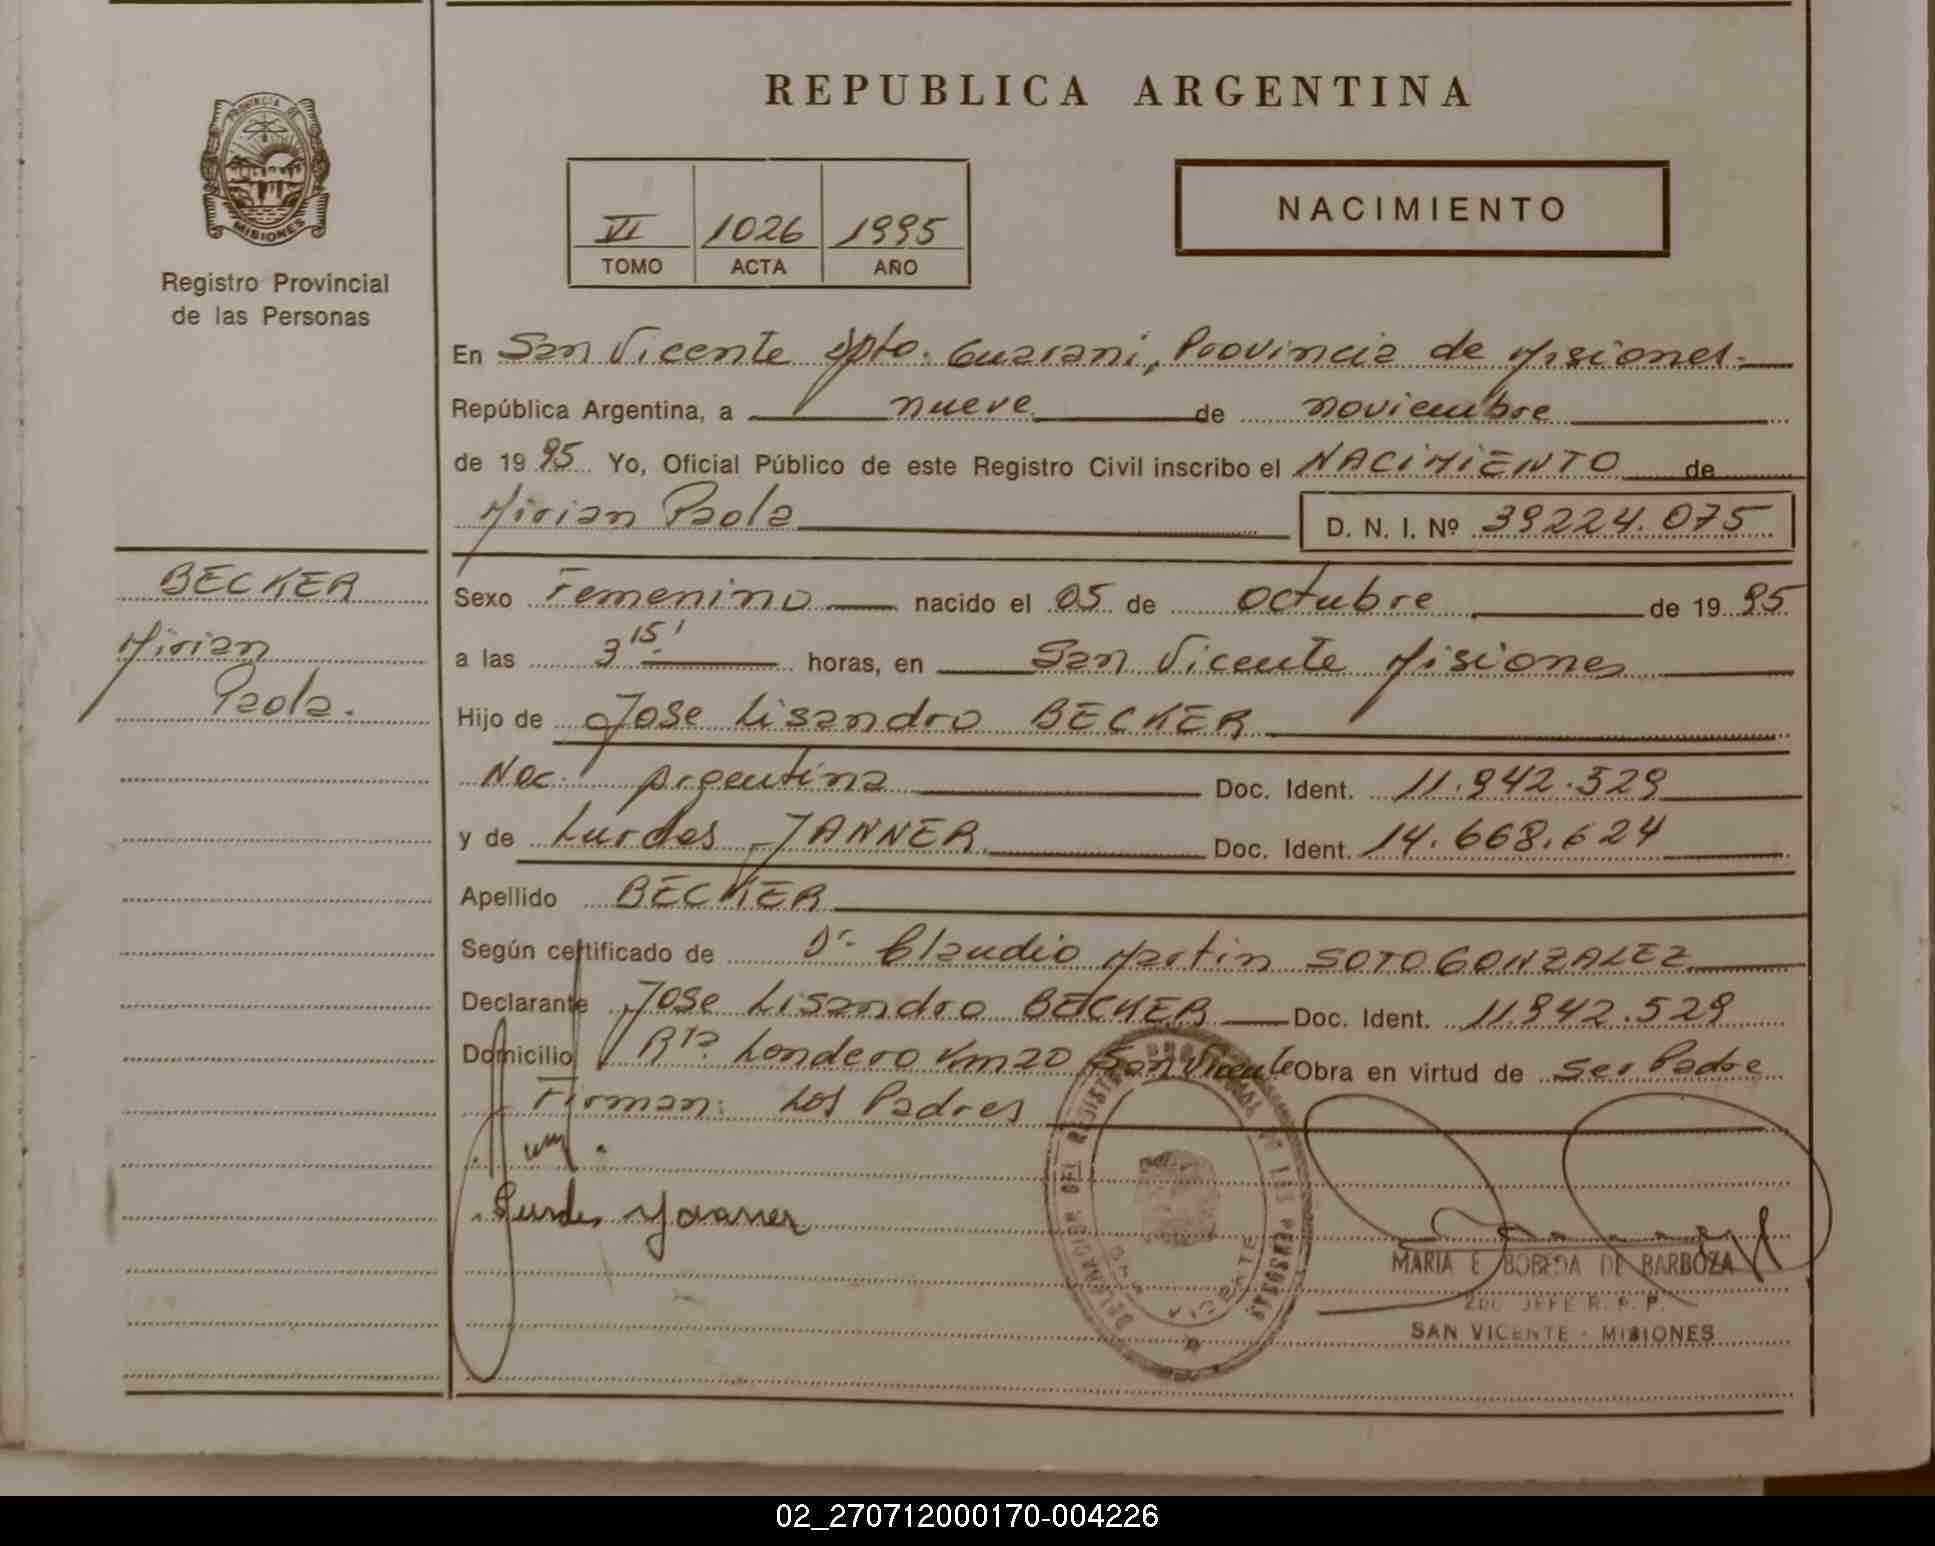 REPUBLICA ARGENTINA
PROVINCIA DE
MISIONES
Registro Provincial
de las Personas
VI 1026 1995
TOMO ACTA AÑO
NACIMIENTO
En San Vicente Dpto. Guarani, Provincia de Misiones.
República Argentina, a nueve de noviembre
de 19 95 Yo, Oficial Público de este Registro Civil inscribo el NACIMIENTO de
Mirian Paola D. N. I. Nº 39224.075
BECKER
Mirian
Paola.
Sexo Femenino nacido el 05 de octubre de 19 95
a las 3 15' horas, en San Vicente Misiones
Hijo de Jose Lisandro BECKER
Nac. Argentina Doc. Ident. 11.942.529
y de Lurdes JANNER Doc. Ident. 14.668.624
Apellido BECKER
Según certificado de Dr. Claudio Martin SOTO GONZALEZ
Declarante Jose Lisandro BECKER Doc. Ident. 11.942.529
Domicilio Rta. Londero Km 20 San Vicente Obra en virtud de ser Padre
Firman: Los Padres
Lurdes Yanner
MARIA E BOBEDA DE BARBOZA
2DO JEFE R. P. P.
SAN VICENTE - MISIONES
02_270712000170-004226